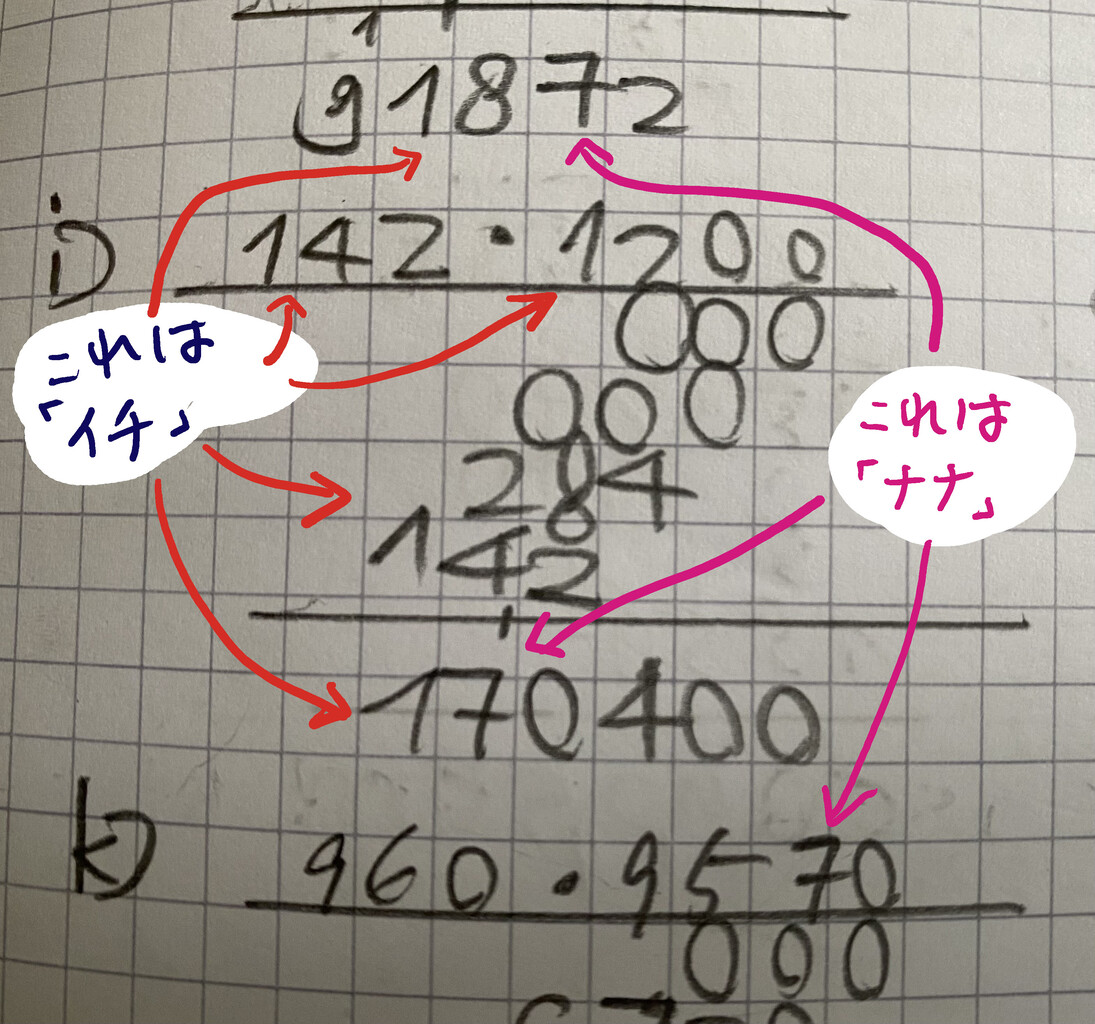 91872
j) 142 · 1200
000
000
284
142
170400
k) 960 · 9570
000
これは
「イチ」
これは
「ナナ」